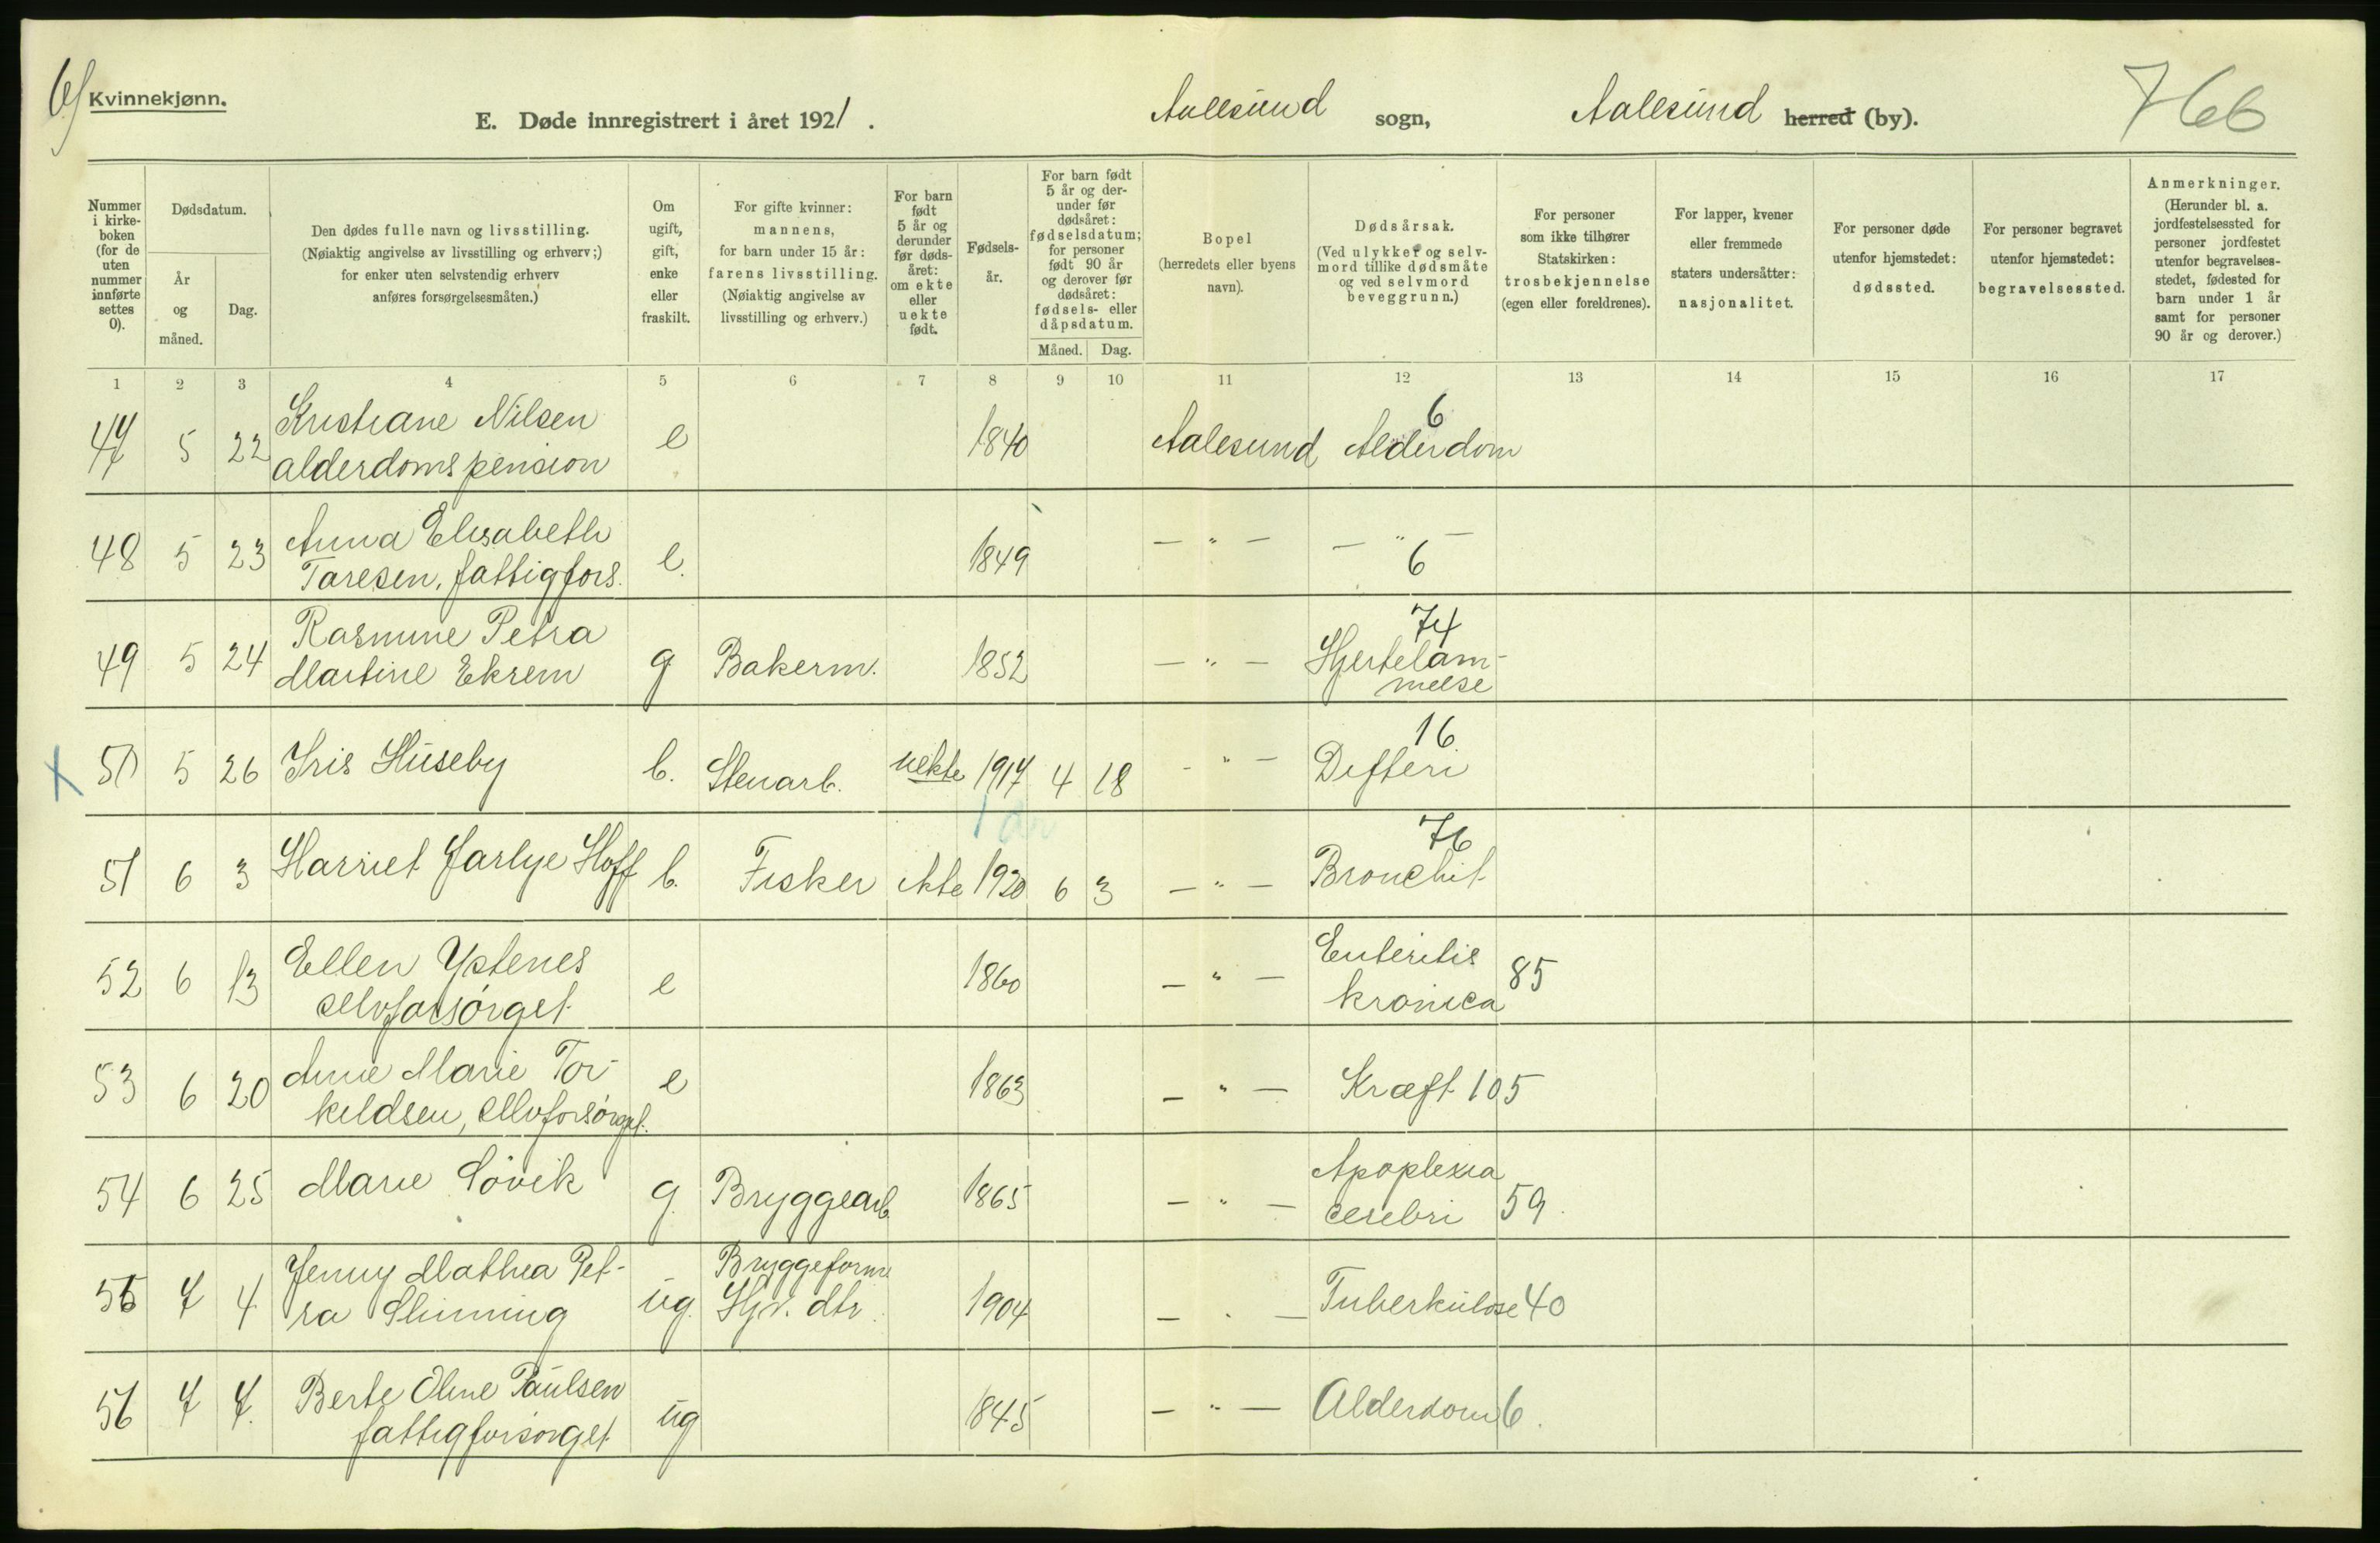 6)
Kvinnekjønn.
E. Døde innregistrert i året 1921.
Aalesund sogn,
Aalesund herred (by).
766
Nummer i kirke- boken (for de uten nummer innførte settes 0).
Dødsdatum.
År og måned.
Dag.
Den dødes fulle navn og livsstilling.
(Nøiaktig angivelse av livsstilling og erhverv;)
for enker uten selvstendig erhverv
anføres forsørgelsesmåten.)
Om ugift, gift, enke eller fraskilt.
For gifte kvinner:
mannens,
for barn under 15 år:
farens livsstilling.
(Nøiaktig angivelse av
livsstilling og erhverv.)
For barn født 5 år og derunder før døds- året: om ekte eller uekte født.
Fødsels- år.
For barn født 5 år og der- under før dødsåret: fødselsdatum; for personer født 90 år og derover før dødsåret: fødsels- eller dåpsdatum.
Måned. Dag.
Bopel
(herredets eller byens
navn).
Dødsårsak.
(Ved ulykker og selv-
mord tillike dødsmåte
og ved selvmord
beveggrunn.)
For personer
som ikke tilhører
Statskirken:
trosbekjennelse
(egen eller foreldrenes).
For lapper, kvener
eller fremmede
staters undersåtter:
nasjonalitet.
For personer døde
utenfor hjemstedet:
dødssted.
For personer begravet
utenfor hjemstedet:
begravelsessted.
Anmerkninger.
(Herunder bl. a.
jordfestelsessted for
personer jordfestet
utenfor begravelses-
stedet, fødested for
barn under 1 år
samt for personer
90 år og derover.)
1 2 3 4 5 6 7 8 9 10 11 12 13 14 15 16 17
47 5 22 Kristiane Nilsen e 1840 Aalesund Alderdom 6
alderdomspension
48 5 23 Anna Elisabeth e. 1849 — " — — " — 6
Taresen, fattigfors.
49 5 24 Rasmine Petra g Bakerm. 1852 — " — 74 Hjertelam-
Martine Ekrem melse
X 50 5 26 Iris Huseby b. Stenarb. uekte 1917 4 18 - " — 16 Difteri
1 år
51 6 3 Harriet Jarlye Hoff b. Fisker ekte 1920 6 3 — " — 76 Bronchit
52 6 13 Ellen Ystenes e 1860 — " — Enteritis 85
selvforsørget kronica
53 6 20 Anne Marie Tor- e 1863 — " — Kræft 105
kildsen, selvforsørget.
54 6 25 Marie Løvik g. Bryggearb. 1865 — " — Apoplexia
cerebri 59
55 7 4 Jenny Mathea Pet- ug. Bryggeform 1904 — " — Tuberkulose 40
ra Slinning Hjv. dtr.
56 7 7. Berte Oline Paulsen ug 1845 — " — Alderdom 6.
fattigforsørget